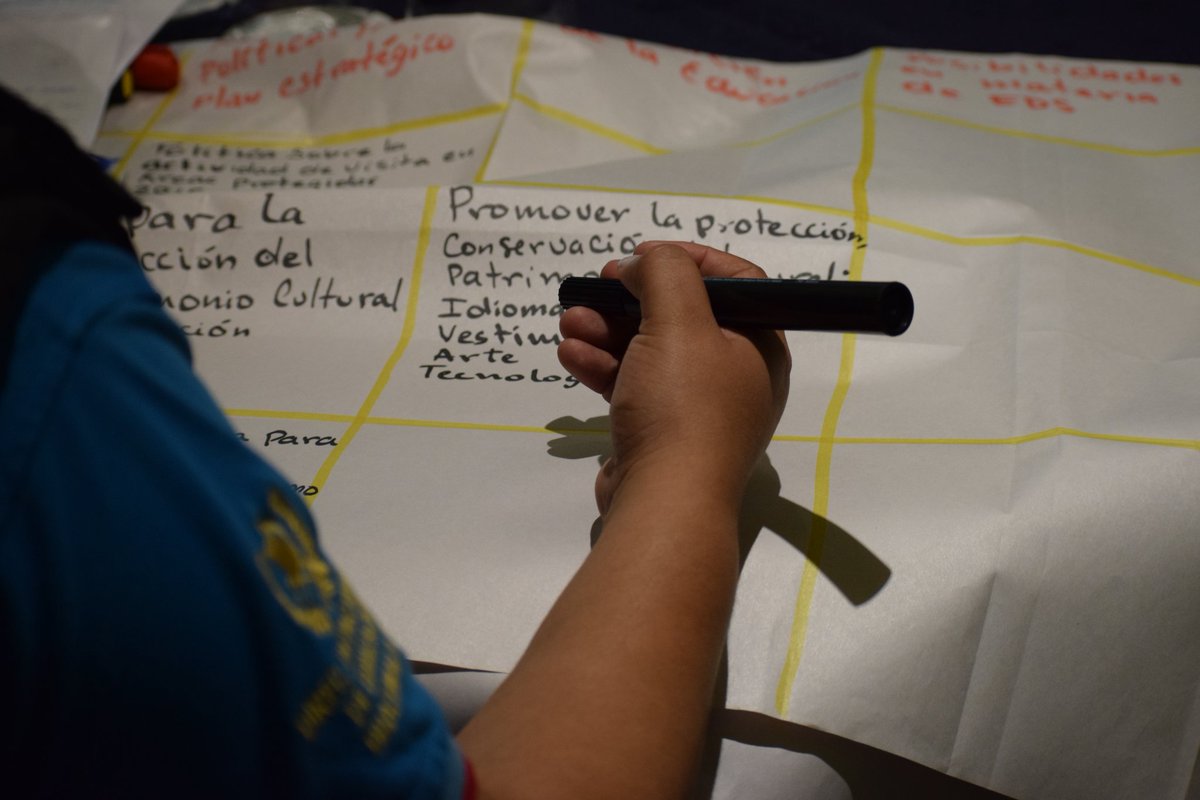 Plan estratégico
la
Posibilidades
en materia
de EDS
sobre la
actividad de visita en
Áreas Protegidas
para la
cción del
monio Cultural
ción
Promover la protección,
Conservació
Patrim ural:
Idioma
Vestim
Arte
Tecnolog
para
mo